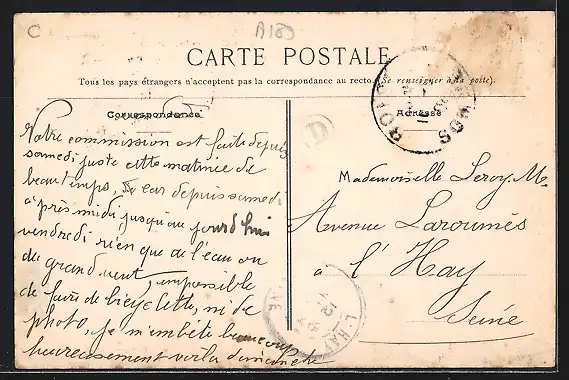 C
A180
CARTE POSTALE
Tous les pays étrangers n'acceptent pas la correspondance au recto. (Se renseigner à la poste).
Correspondance
Adresse
D
Votre commission est faite depuis
samedi juste cette matinée de
beau temps, car depuis samedi
après midi jusqu'au jourd'hui
vendredi rien que de l'eau ou
du grand vent, impossible
de faire de bicyclette, ni de
photo, je m'embête beaucoup
heureusement voilà dimanche
Mademoiselle Leroy. M.
Avenue Laroumès
à l'Hay
Seine
L'HAY